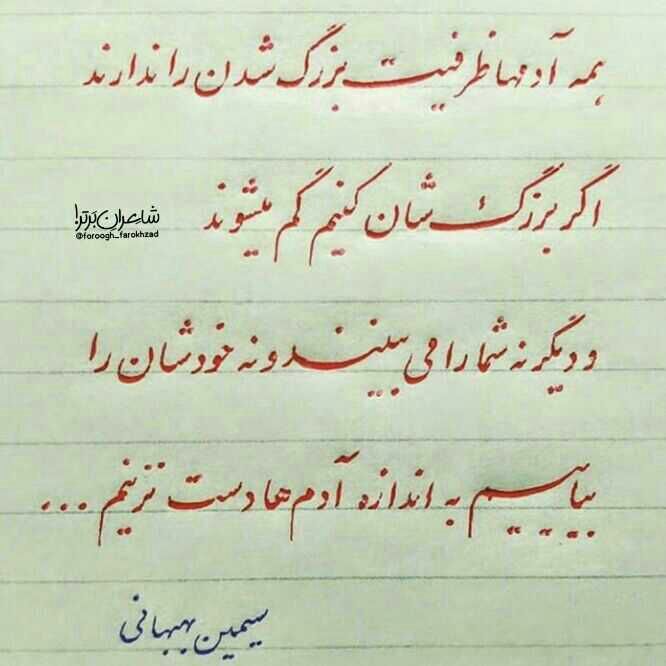 همه آدمها ظرفیت بزرگ شدن را ندارند
اگر بزرگ شان کنیم گم میشوند
شاعران برتر!
@foroogh_farokhzad
و دیگر نه شما را می بینند و نه خودشان را
بیاییم به اندازه آدم ها دست نزنیم ...
سیمین بهبهانی